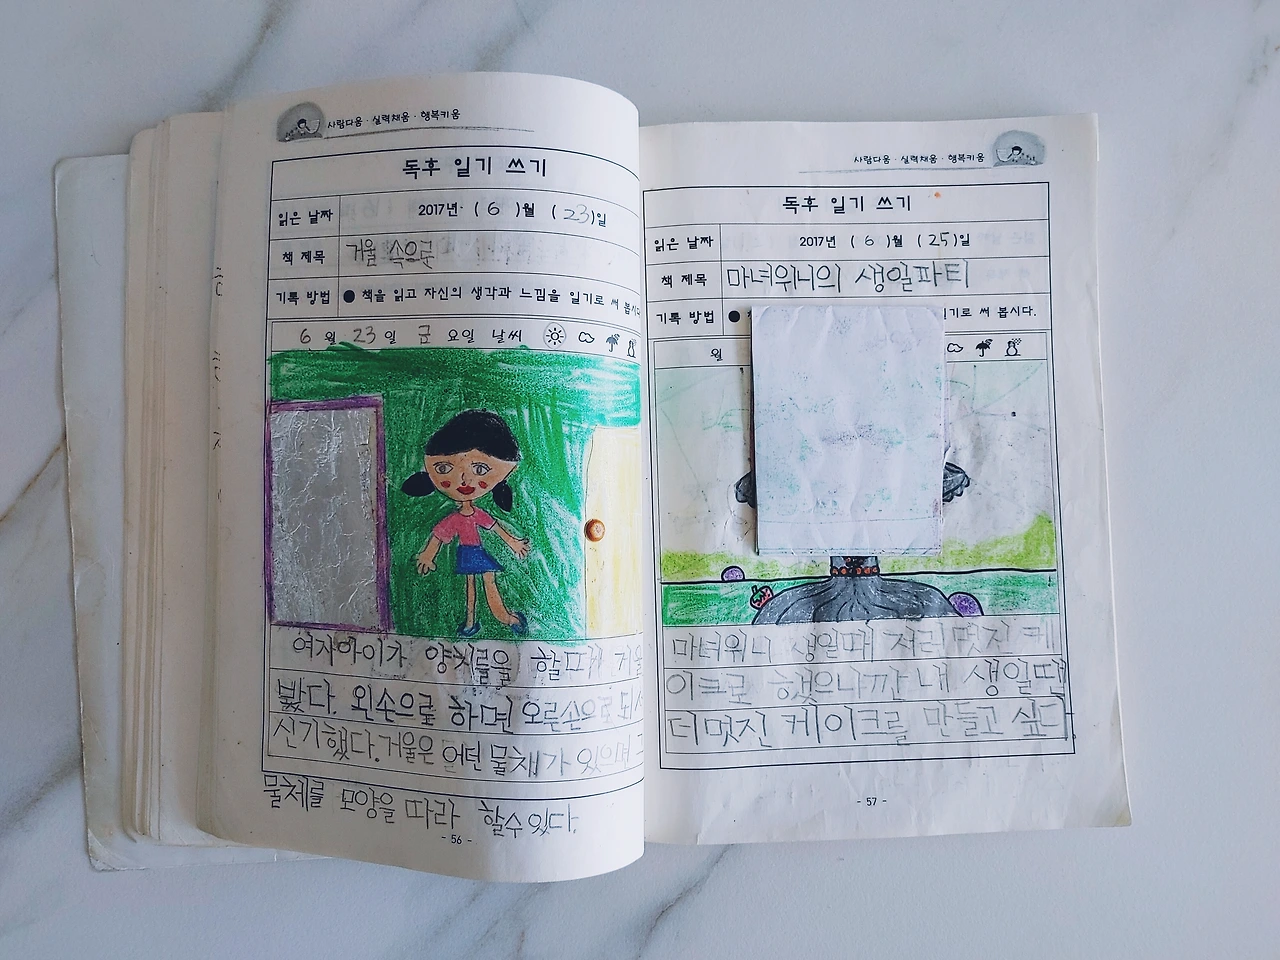 사람다움 · 실력채움 · 행복키움
독후 일기 쓰기
읽은 날짜 2017년 ( 6 )월 ( 23 )일
책 제목 거울 속으로
기록 방법 ● 책을 읽고 자신의 생각과 느낌을 일기로 써 봅시다
6 월 23 일 금 요일 날씨
여자아이가 양치를을 할때 거울
봤다. 왼손으로 하면 오른손으로
신기했다. 거울은 어떤 물채가 있으며
물체를 모양을 따라 할수 있다.
- 56 -
사람다움 · 실력채움 · 행복키움
독후 일기 쓰기
읽은 날짜 2017년 ( 6 )월 ( 25 )일
책 제목 마녀위니의 생일파티
기록 방법 ● 일기로 써 봅시다.
월
마녀위니 생일때 저런 멋진 케
이크로 했으니깐 내 생일땐
더멋진 케이크를 만들고 싶다.
- 57 -